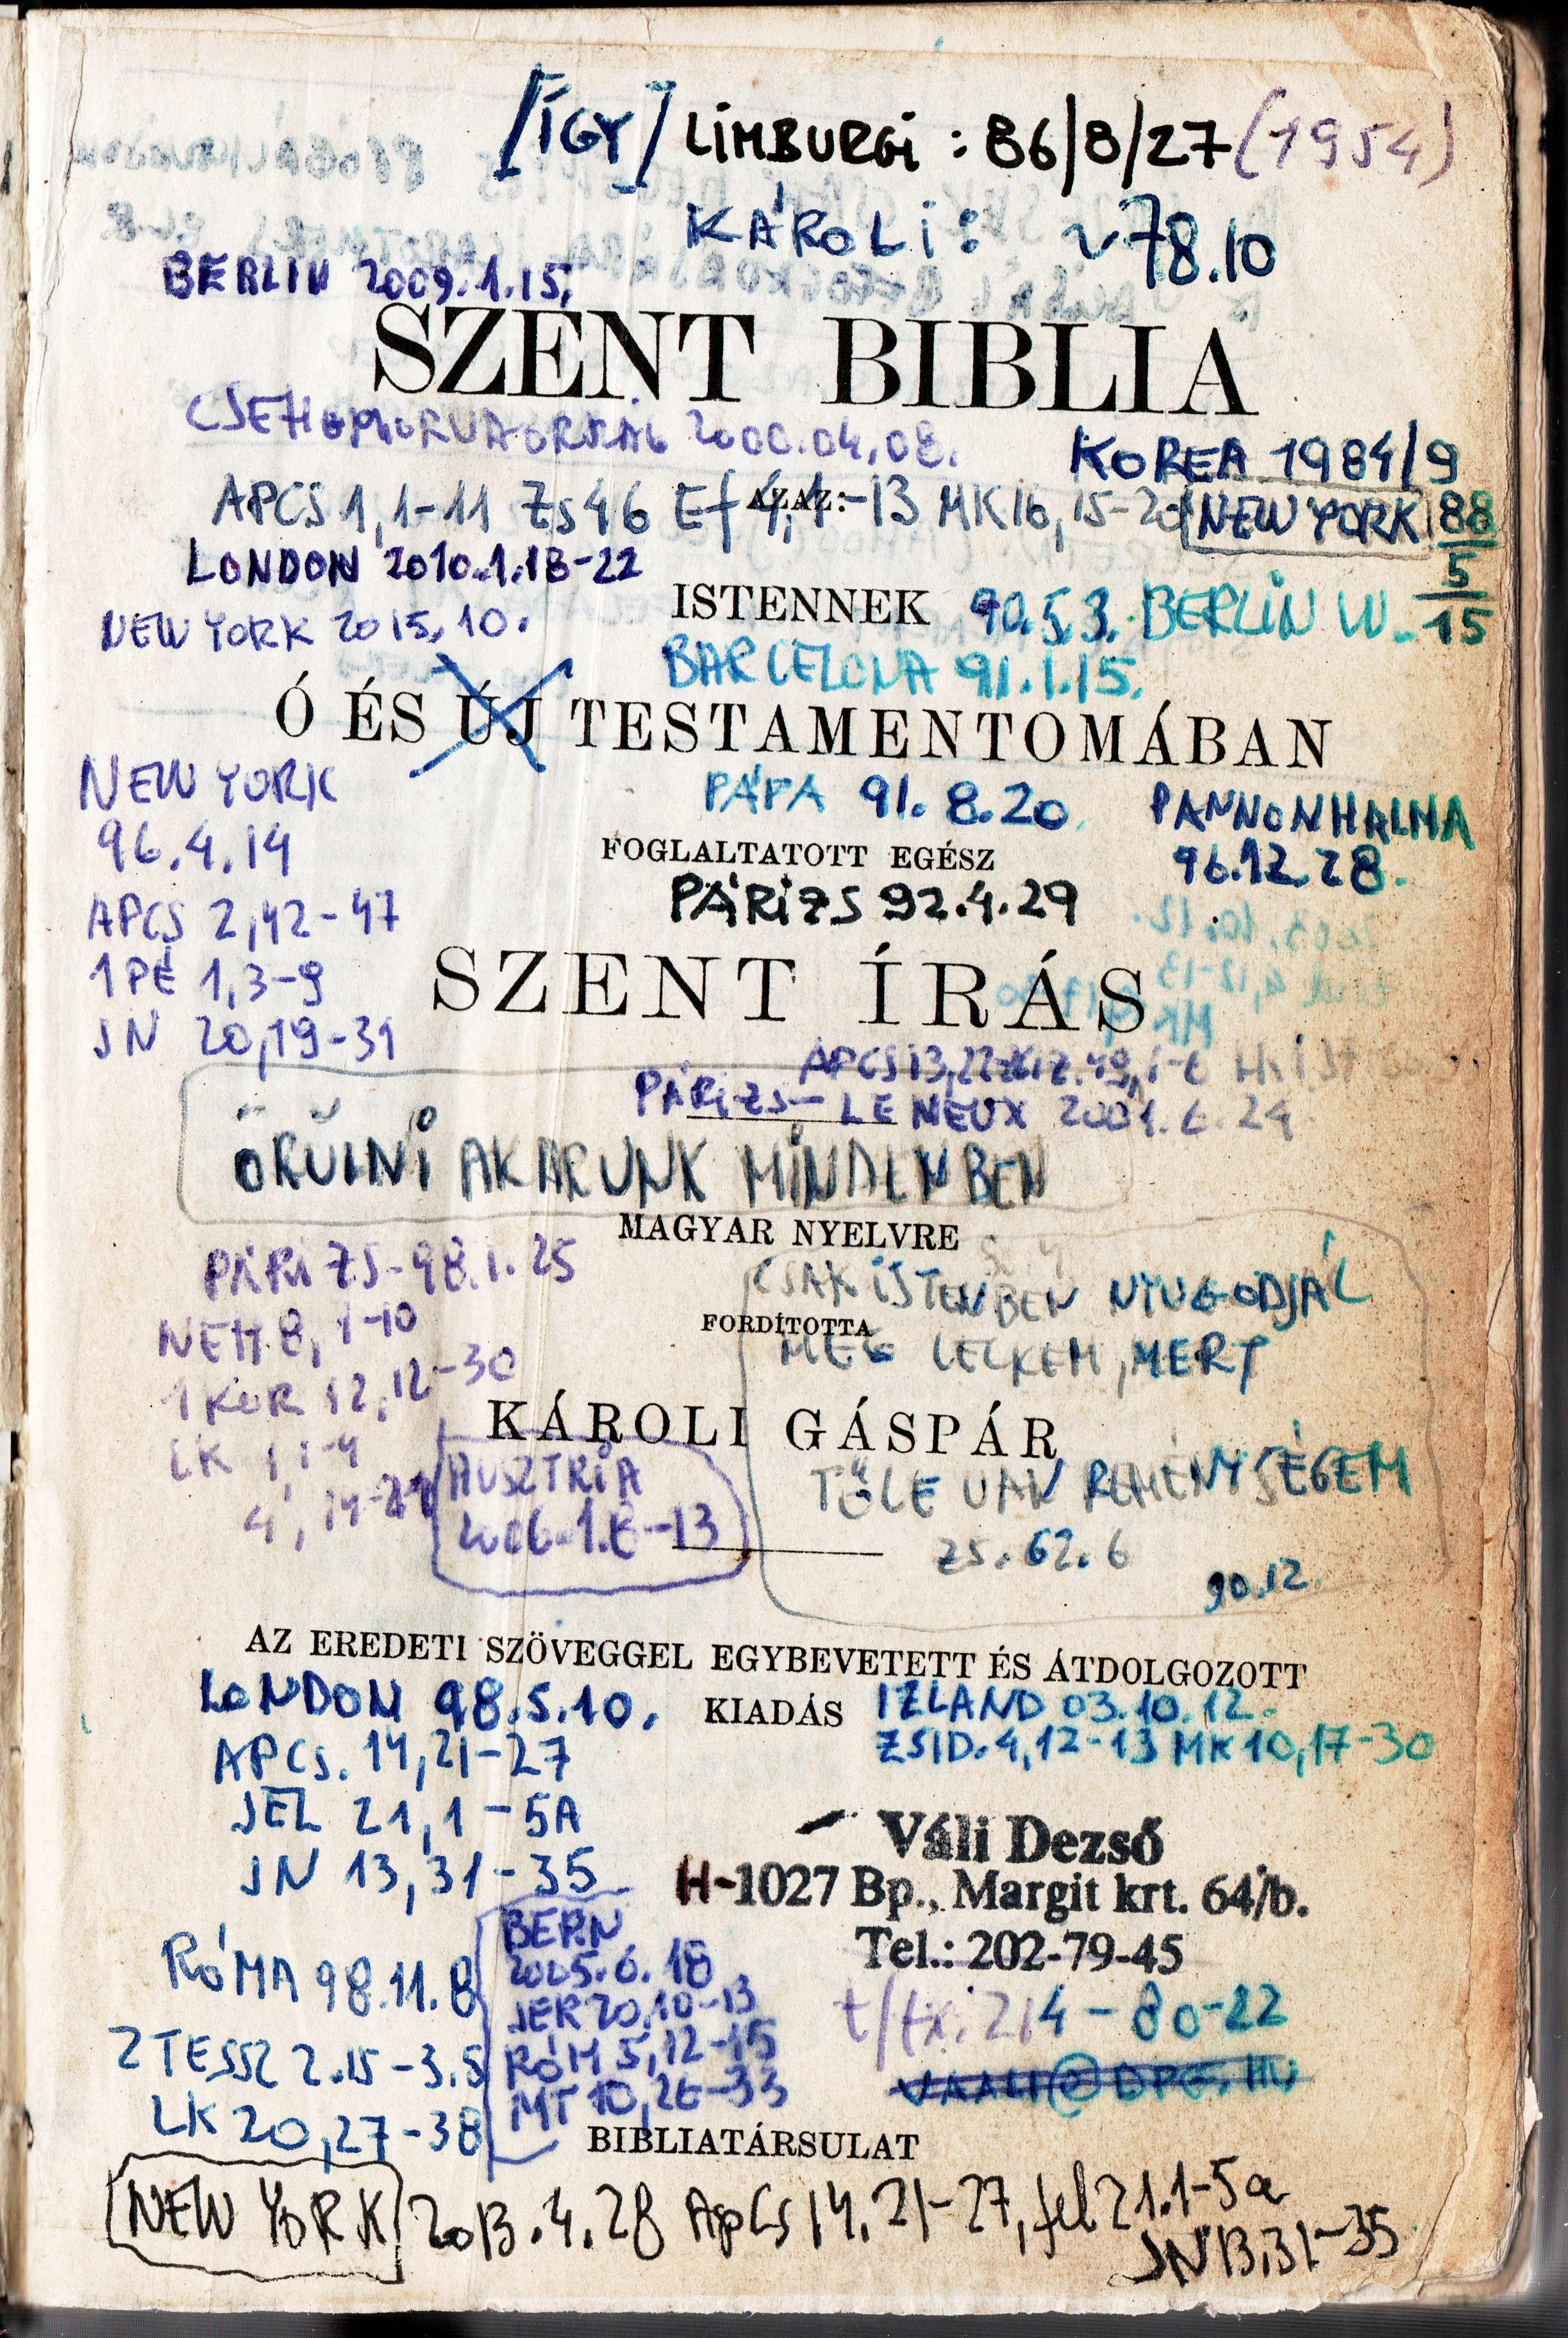 [ÍGY] LIMBURGI : 86/8/27 (1954)
KÁROLI: ~78.10
BERLIN 2009.1.15.
SZENT BIBLIA
2000.04.08.
KOREA 1984/9
APCS 1,1-11 ZS 46 Ef 4,1-13 MK 16,15-20
AZAZ:
NEW YORK 88
5
15
LONDON 2010.1.18-22
ISTENNEK
90.5.3. BERLIN W.
NEW YORK 2015.10.
BARCELONA 91.1.15.
Ó ÉS ÚJ TESTAMENTOMÁBAN
NEW YORK
96.4.14
PÁPA 91.8.20
PANNONHALMA
96.12.28.
FOGLALTATOTT EGÉSZ
PÁRIZS 92.4.29
APCS 2,42-47
1 PÉ 1,3-9
JN 20,19-31
SZENT ÍRÁS
APCS 13,22
PÁRIZS- LE NEUX 2001.6.24
ÖRÜLNI AKARUNK MINDENBEN
MAGYAR NYELVRE
PÁRIZS-98.1.25
NEH 8, 1-10
1 KOR 12,12-30
LK 1,1-4
4, 14-21
CSAK ISTENBEN NYUGODJÁL
FORDÍTOTTA
MEG LELKEM, MERT
KÁROLI GÁSPÁR
TŐLE VAN REMÉNYSÉGEM
ZS. 62.6
90.12.
AUSZTRIA
2006.1.6-13
AZ EREDETI SZÖVEGGEL EGYBEVETETT ÉS ÁTDOLGOZOTT
KIADÁS
LONDON 98.5.10.
APCS. 14,21-27
JEL 21,1-5A
JN 13,31-35
IZLAND 03.10.12.
ZSID. 4,12-13 MK 10,17-30
Váli Dezső
H-1027 Bp., Margit krt. 64/b.
Tel.: 202-79-45
t/fx: 214-80-22
VAALI@DPG.HU
RÓMA 98.11.8
2 TESSZ 2.15-3.5
LK 20,27-38
BERN
2005.6.18
JER 20,10-13
RÓM 5,12-15
MT 10,26-33
BIBLIATÁRSULAT
NEW YORK 2013.4.28 ApCs 14,21-27, Jel 21.1-5a
JN 13,31-35